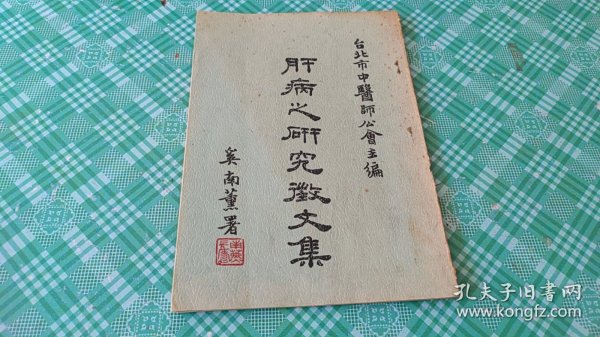 台北市中醫師公會主編
肝病之研究徵文集
奚南薰署
孔夫子旧书网
www.kongfz.com